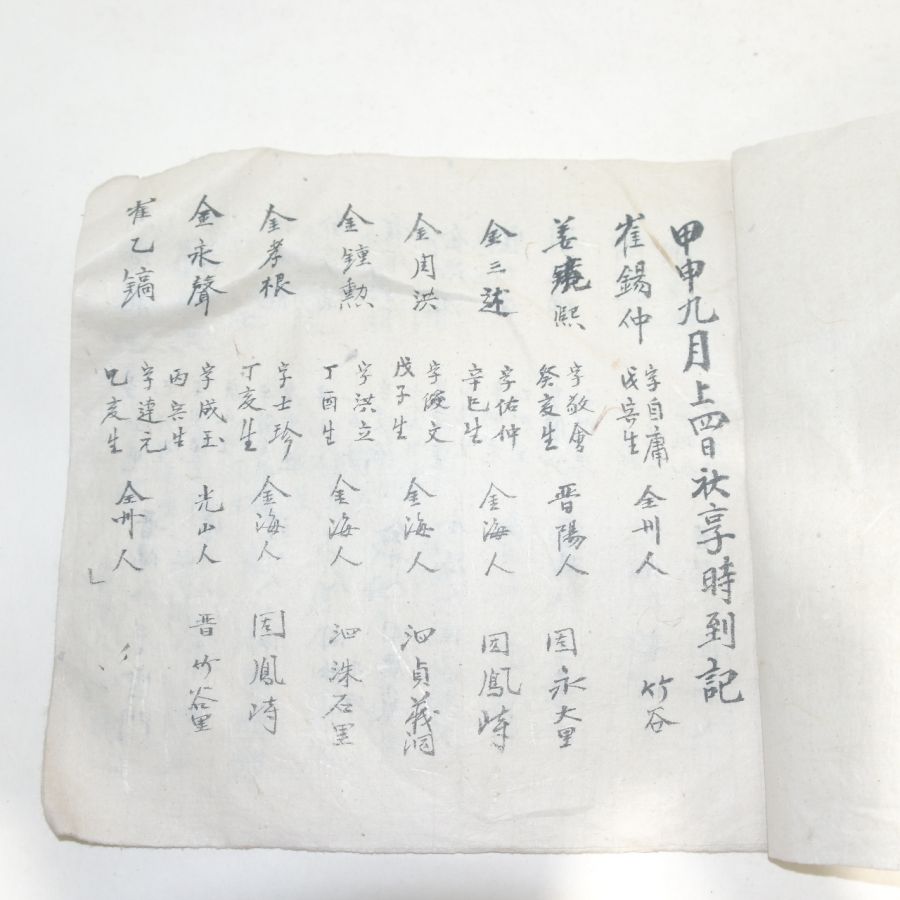 甲申九月上四日秋享時到記
崔錫仲 字自庸 戊寅生 全州人 竹谷
姜熙 字敬會 癸亥生 晋陽人 固永大里
金三述 字佑仲 辛巳生 金海人 固鳳峙
金周洪 字俊文 戊子生 金海人 泗貞義洞
金鍾勲 字洪立 丁酉生 金海人 泗洙石里
金孝根 字士珍 丁亥生 金海人 固鳳峙
金永聲 字成玉 丙寅生 光山人 晋竹谷里
崔乙鎬 字達元 乙亥生 全州人 〃